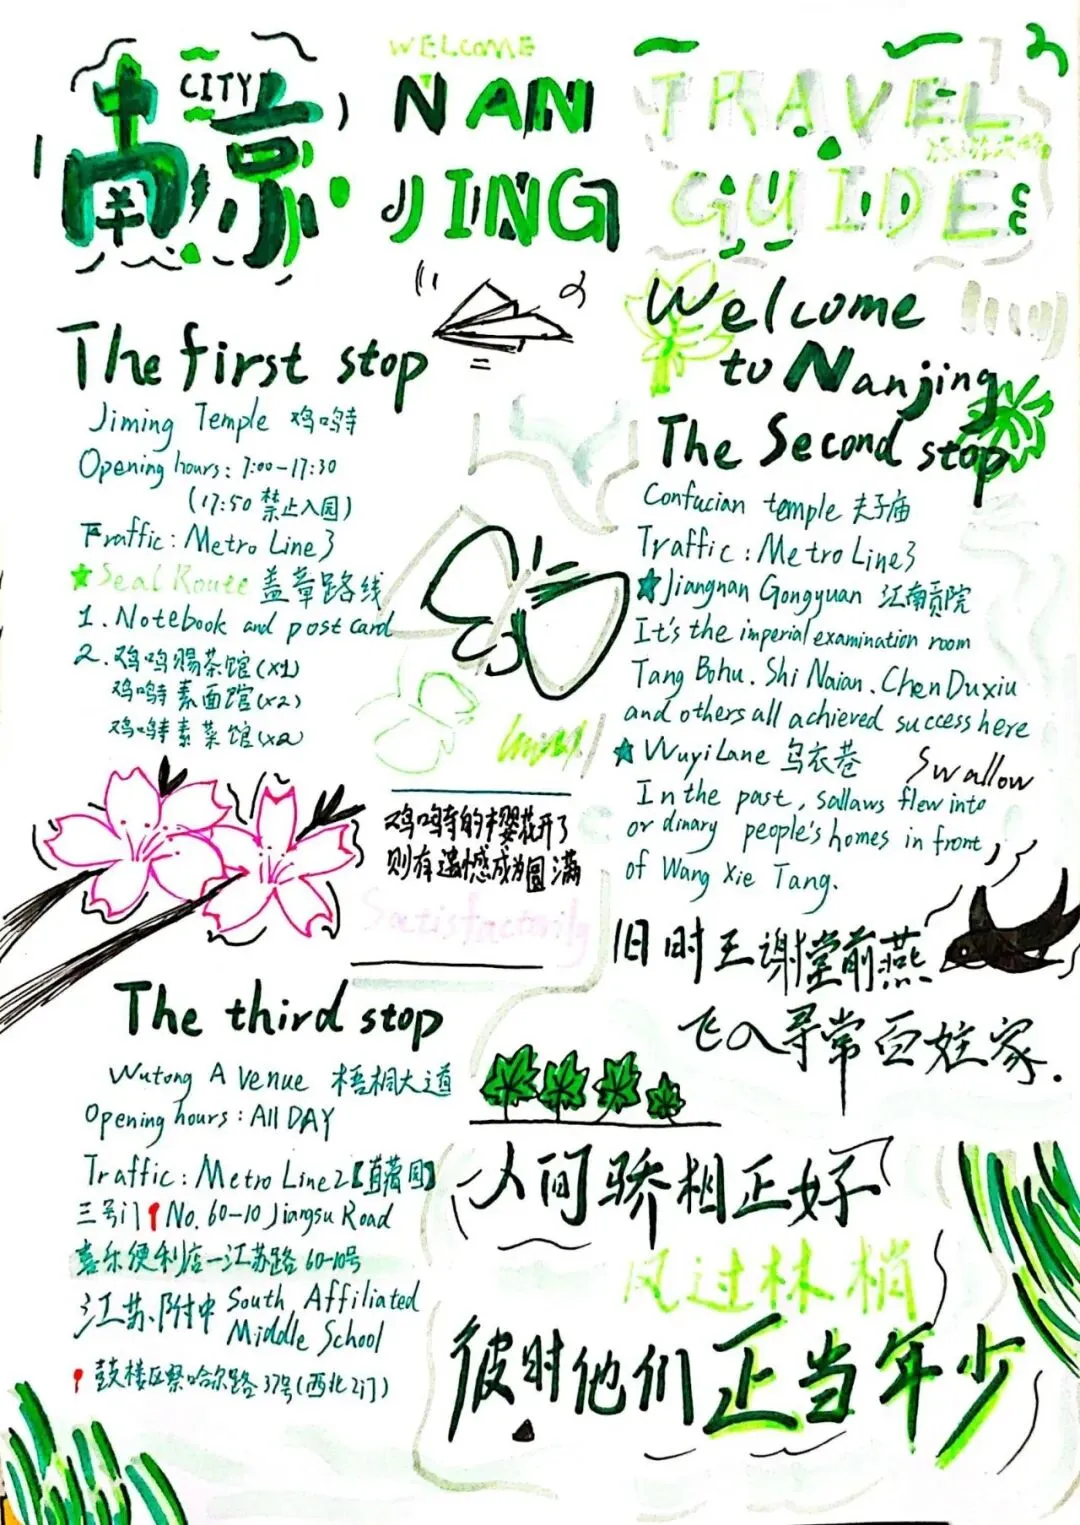 南京
CITY
WELCOME
NAN
JING
TRAVEL
GUIDE
The first stop
Jiming Temple 鸡鸣寺
Opening hours: 7:00-17:30
(17:50 禁止入园)
Traffic: Metro Line 3
Seal Route 盖章路线
1. Notebook and post card
2. 鸡鸣赐茶馆(x1)
鸡鸣寺素面馆(x2)
鸡鸣寺素菜馆(x2)
鸡鸣寺的樱花开了
则有遗憾成为圆满
Satisfactorily
The third stop
Wutong Avenue 梧桐大道
Opening hours: All DAY
Traffic: Metro Line 2【苜蓿园】
三号门 No. 60-10 Jiangsu Road
喜乐便利店—江苏路60-10号
江苏附中 South Affiliated
Middle School
鼓楼区察哈尔路37号(西北2门)
Welcome
to Nanjing
The Second stop
Confucian temple 夫子庙
Traffic: Metro Line 3
Jiangnan Gongyuan 江南贡院
It's the imperial examination room
Tang Bohu. Shi Naian. Chen Duxiu
and others all achieved success here
Wuyi Lane 乌衣巷
Swallow
In the past, sallaws flew into
or dinary people's homes in front
of Wang Xie Tang.
旧时王谢堂前燕
飞入寻常百姓家.
人间骄相正好
风过林梢
彼时他们正当年少